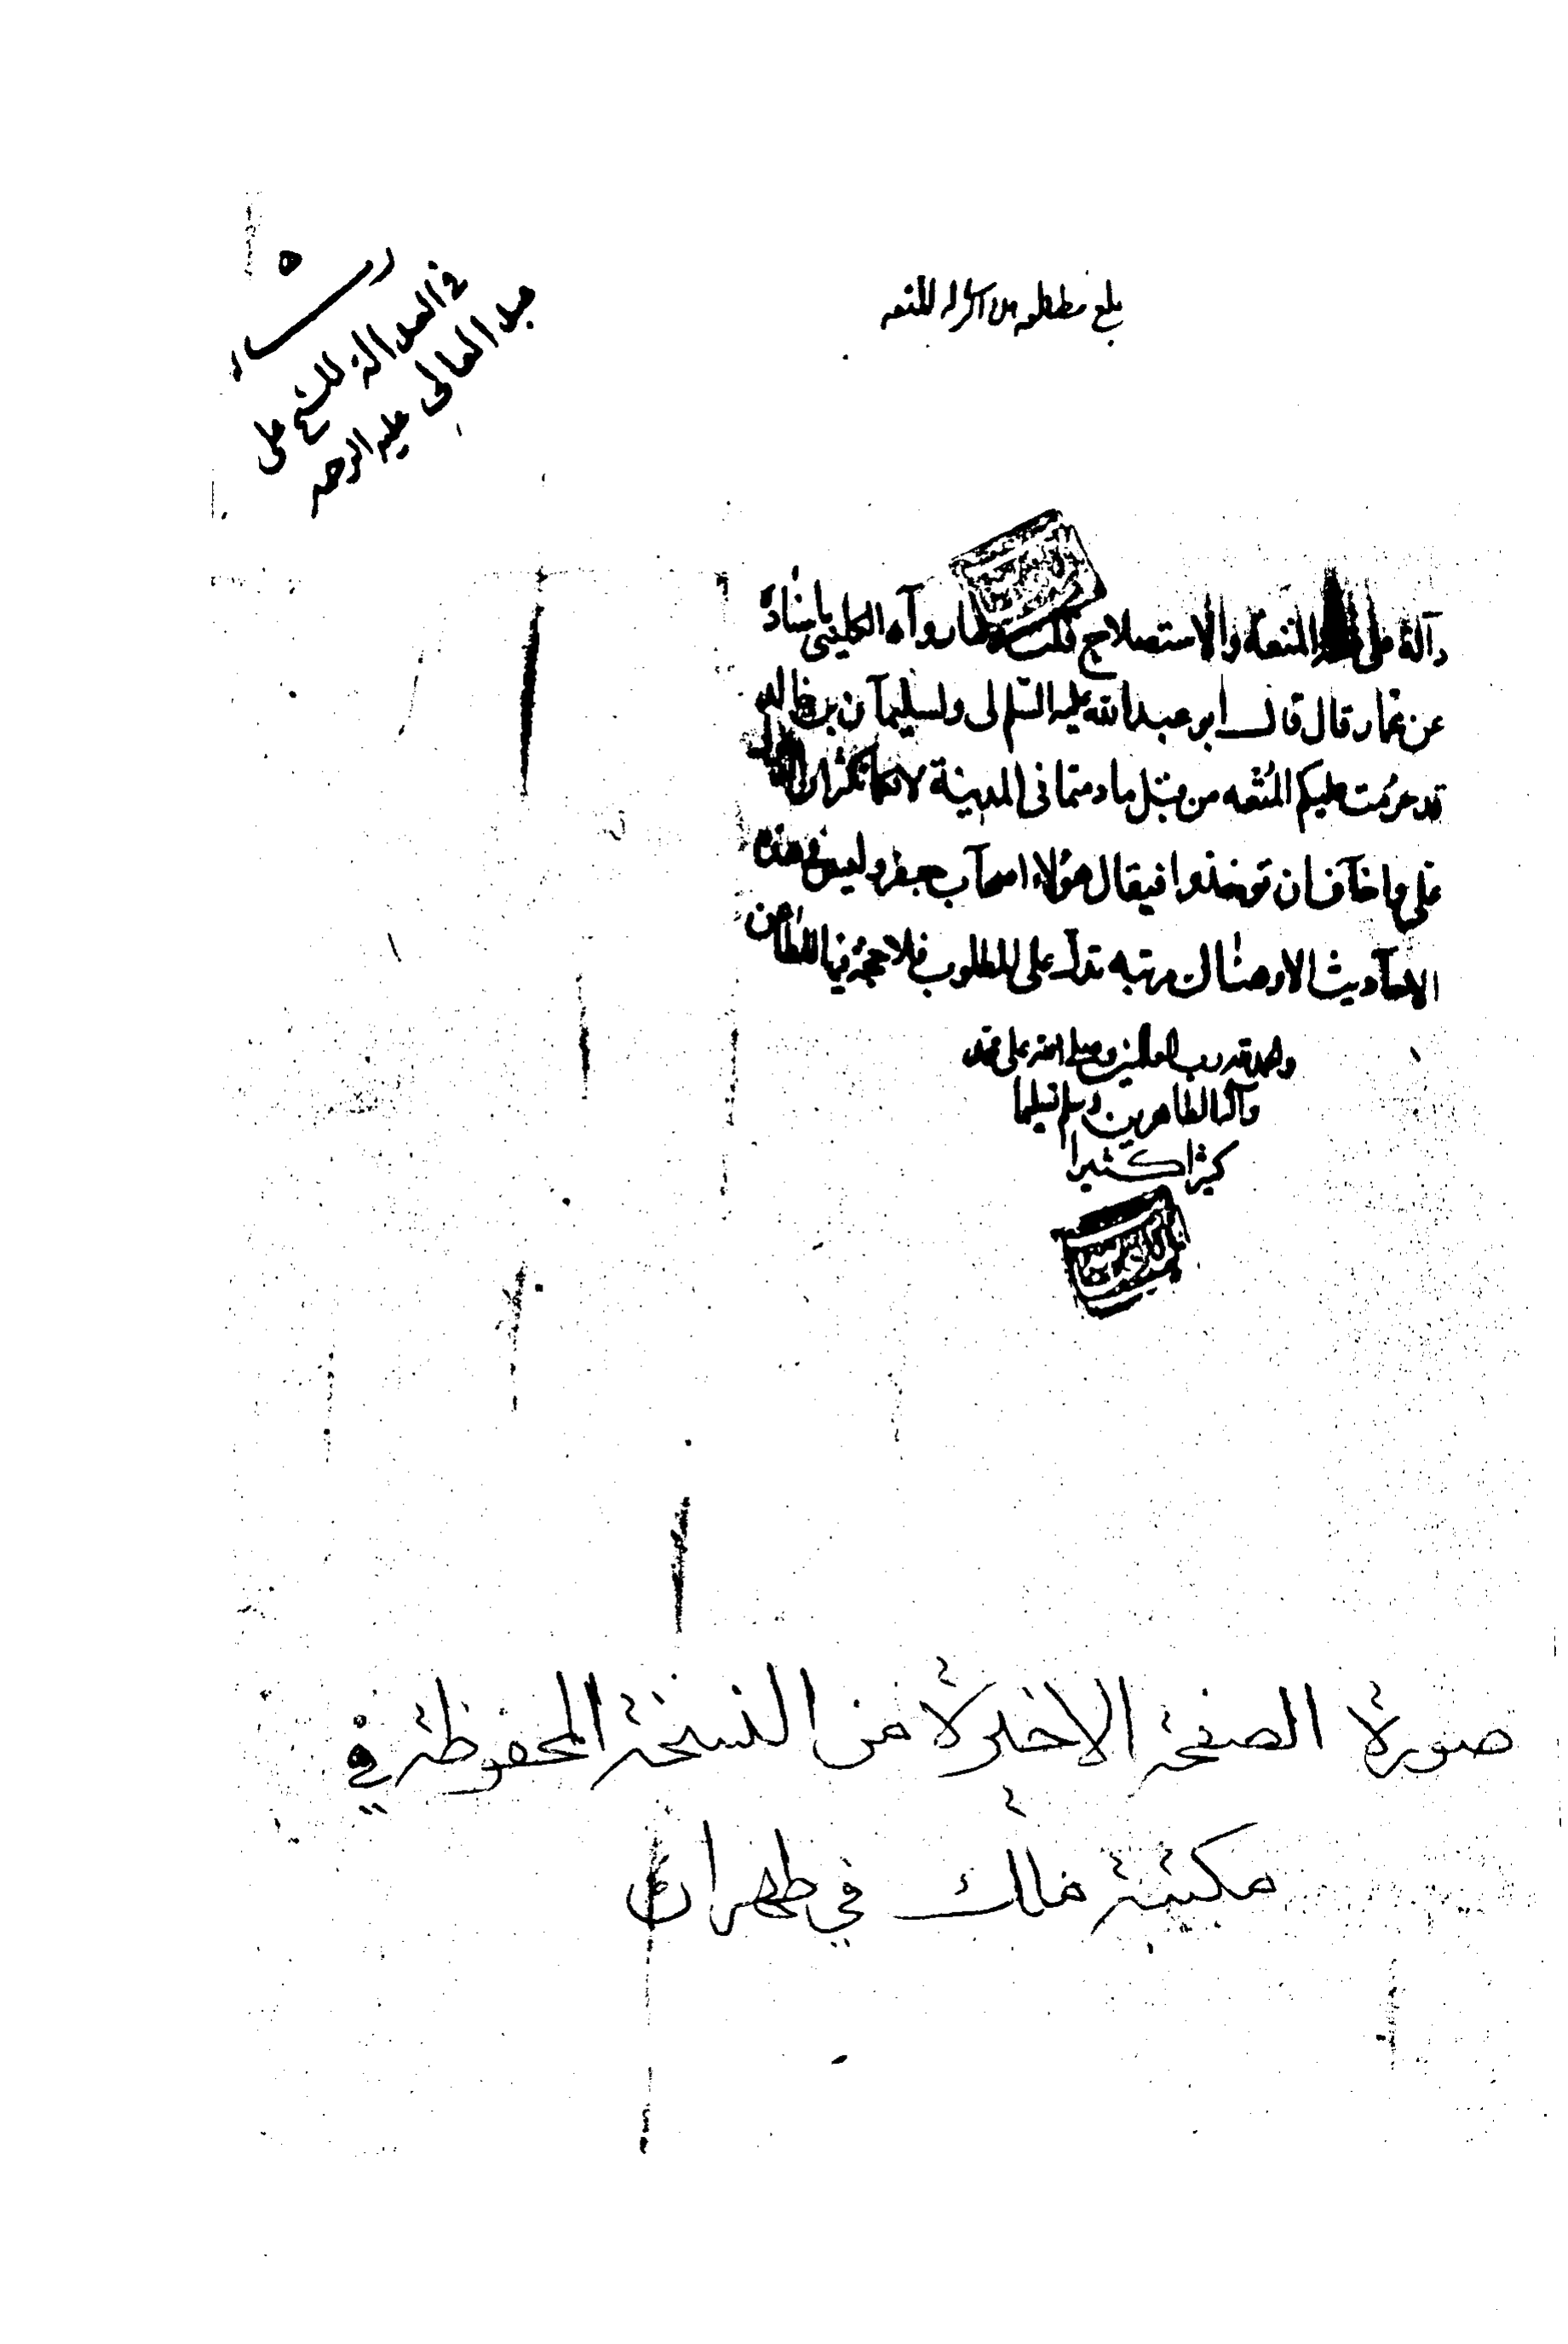 بلغ
رسالة
في العدالة للشيخ علي
عبد العالى عليه الرحمه
دآلة على المتعة والاستصلاح قلت روآه الكلينى باسناده
عن عمار قال قال أبو عبد الله عليه السلم لى ولسليمآن بن خالد
قد حرمت عليكم المتعه من قبل ما دمتما فى المدينة لانكما تكثران
على واخآف ان توخذوا فيقال هؤلاء اصحآب جعفر وليس فى هذه
الاحآديث تدل على المطلوب فلا حجة فيها
والحمد لله رب العالمين وصلى الله على محمد
وآله الطاهرين وسلم تسليما
كثيرا كثيرا
صورة الصفحة الاخيرة من النسخة المحفوظة في
مكتبة ملك في طهران